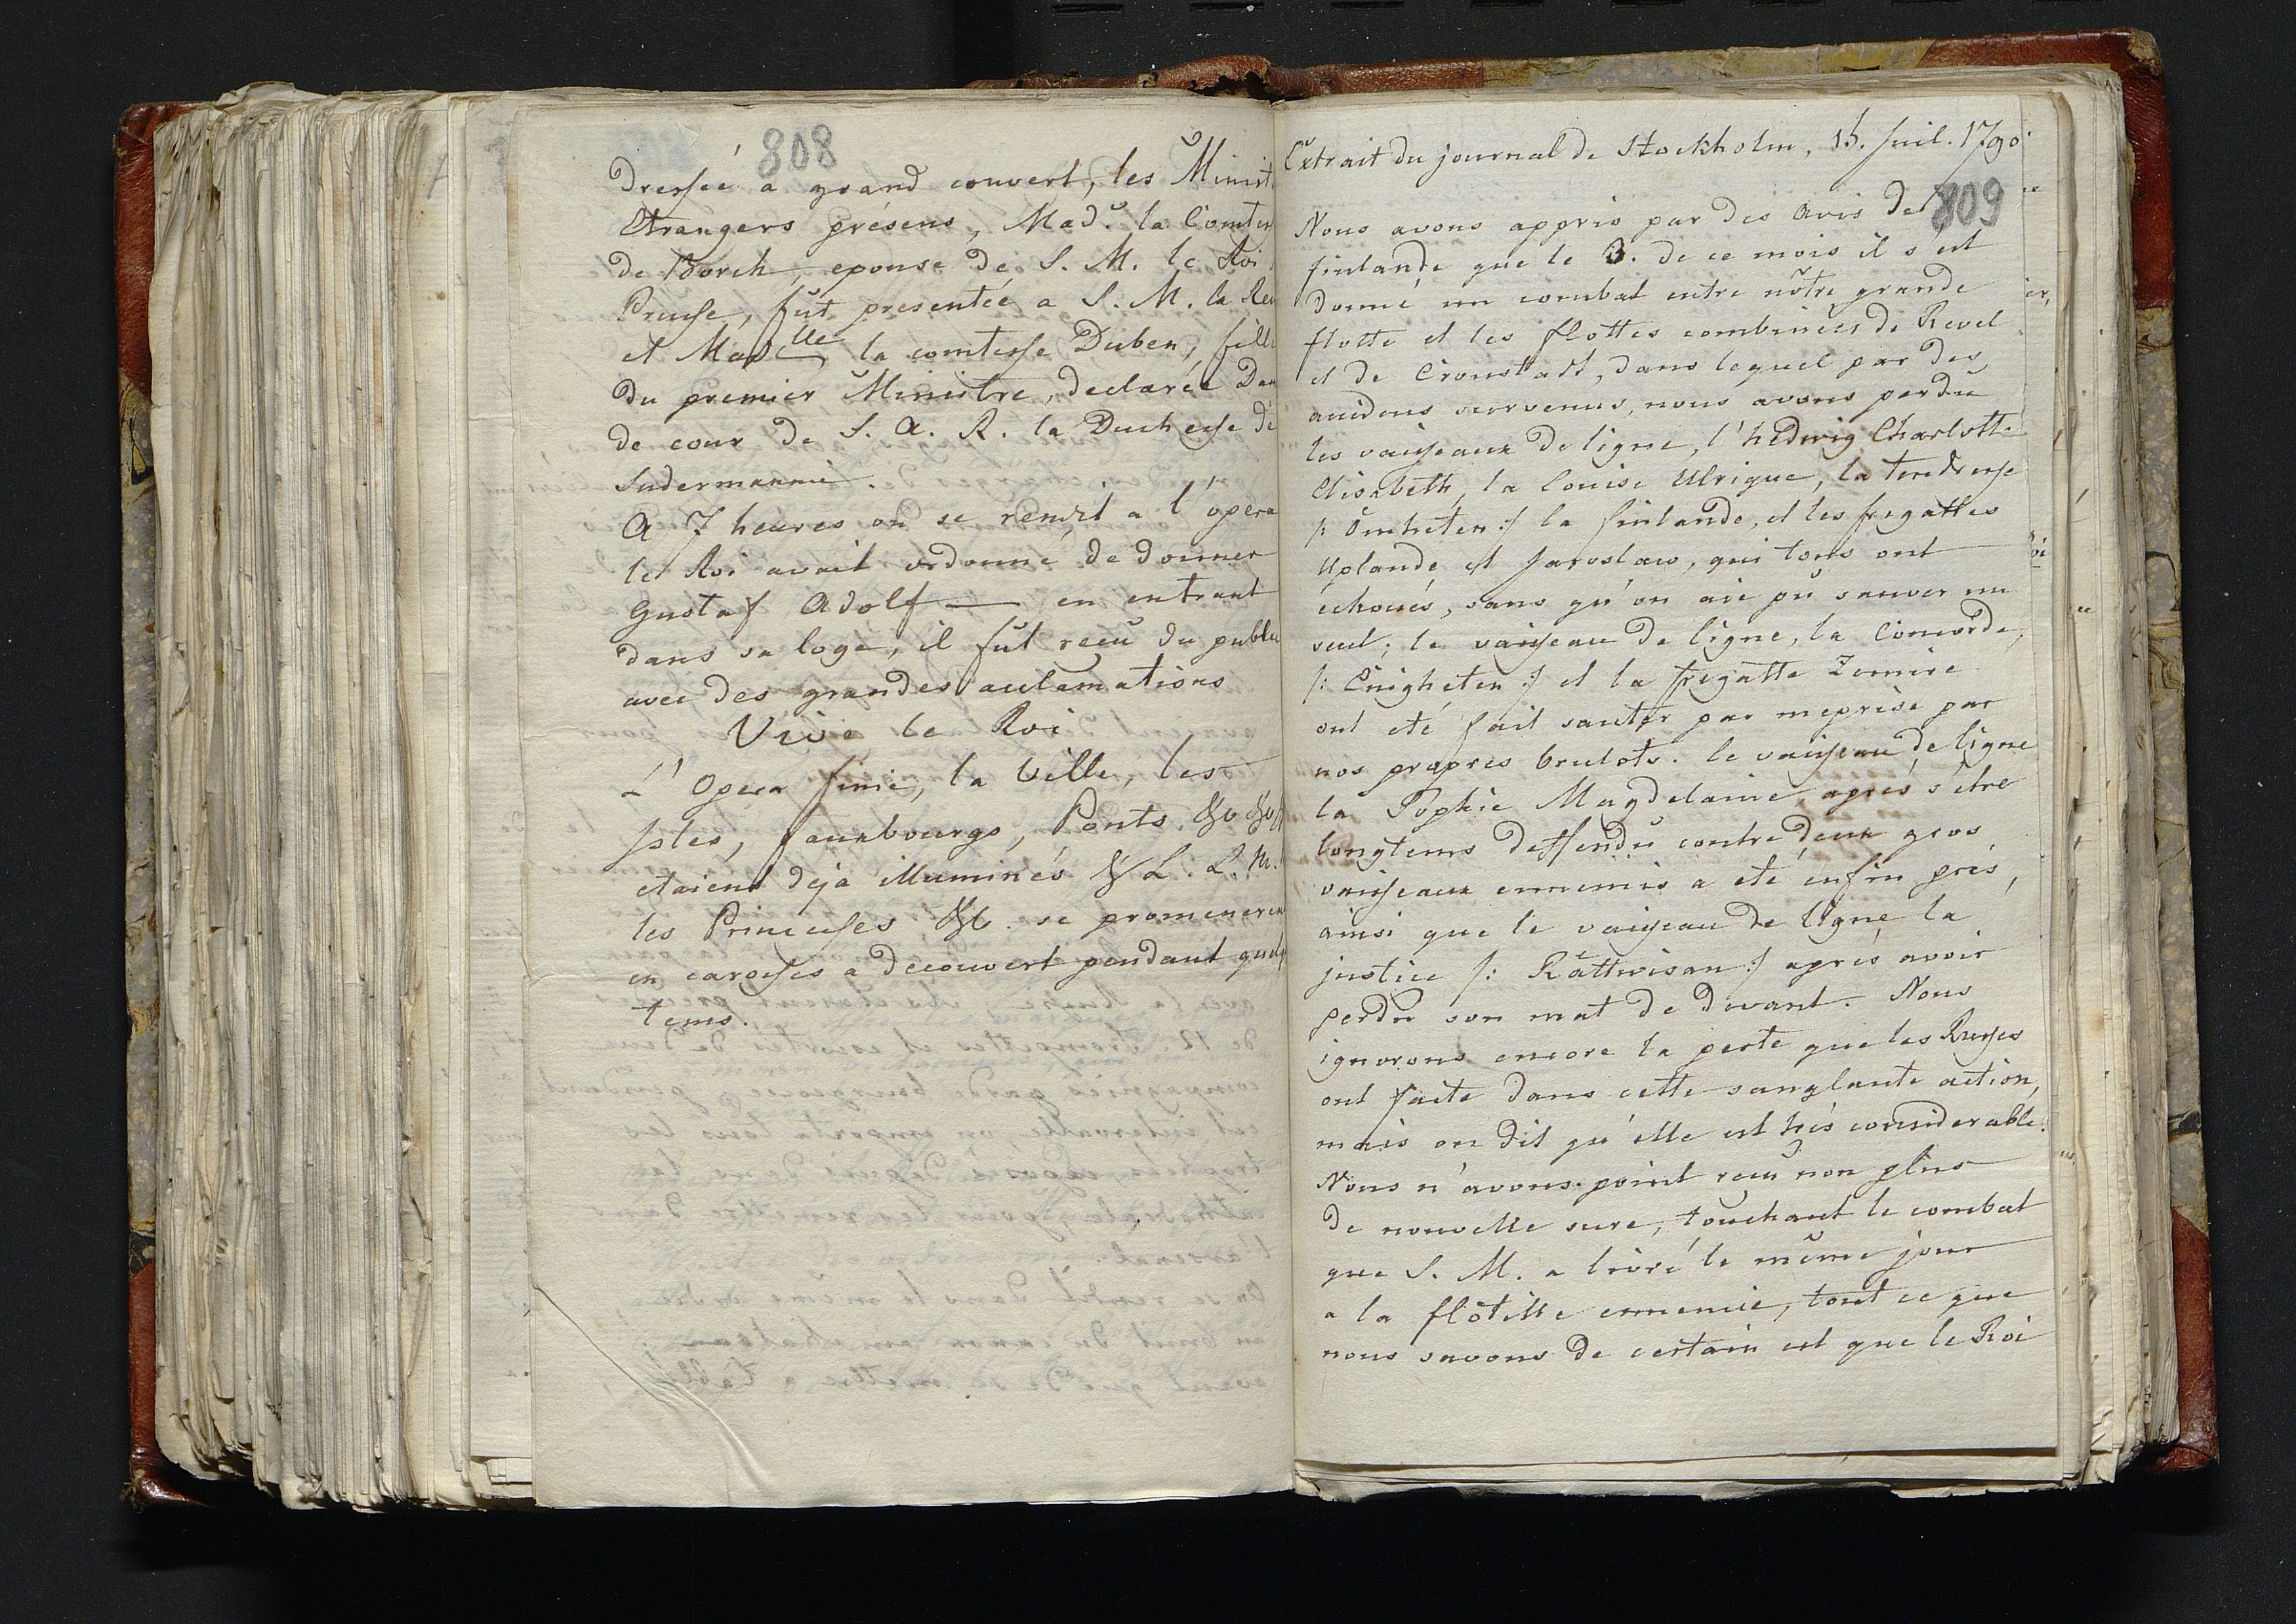 808
Dressée a grand couvert, les Minist
Etrangers présens, Mad.e la Comtes
de Borck, epouse de S. M. le Roi
Prusse, fut presentée a S. M. la Rei
et Madlle la comtesse Duben, fille
du premier Ministre, declarée Dam
de cour de S. A. R. la Duchesse de
Sudermannie.
A 7 heures on se rendit a l'opera
le Roi avait ordonné de donner
Gustaf Adolf — en entrant
dans sa loge, il fut recu du public
avec des grandes acclamations
Vive le Roi
L'Opera finie, la Ville, les
Isles, fauxbourgs, Ponts &c &c
etaient deja illuminés & L. L. M.
les Princesses &c. se promeneren
en carosses a decouvert pendant quelq
tems.
Extrait du journal de Stockholm, 15. Juil. 1790
809
Nous avons appris par des avis de
finlande que le 3. de ce mois il s'est
donné un combat entre nôtre grande
flotte et les flottes combinées de Revel
et de Cronstadt, dans lequel par des
accidens survenus, nous avons perdu
les vaisseaux de ligne, l'hedwig Charlotte
Elisabeth, la Louise Ulrique, la tendresse
/: Ömheten :/ la finlande, et les fregattes
Uplande et Jaroslaw, qui tous ont
échoués, sans qu'on aie pû sauver un
seul; le vaisseau de ligne, la Concorde,
/: Enigheten :/ et la fregatte Zemire
ont eté fait sauter par meprise par
nos propres brulots. le vaisseau de ligne
la Sophie Magdelaine, aprés s'etre
longtems deffendu contre deux gros
vaisseaux ennemis a eté enfin pris,
ainsi que le vaisseau de ligne la
justice /: Rättwisan :/ aprés avoir
perdu son mat de devant. Nous
ignorons encore la perte que les Russes
ont faite dans cette sanglante action,
mais on dit qu'elle est trés considerable.
Nous n'avons point recu non plus
de nouvelle sure, touchant le combat
que S. M. a livré le même jour
a la flôtille ennemie, tout ce que
nous savons de certain est que le Roi